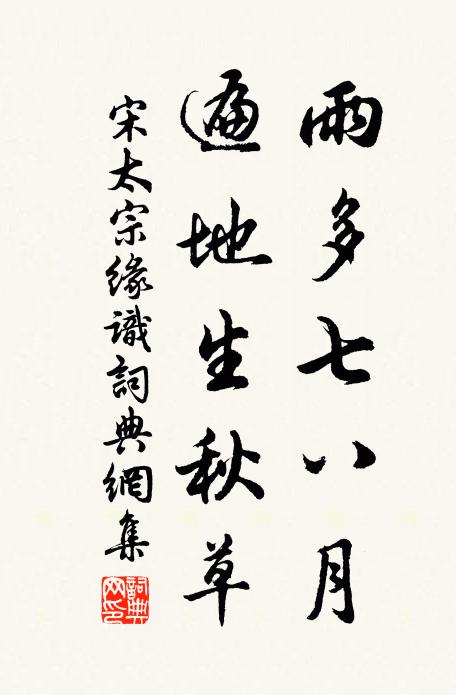 雨多七八月
遍地生秋草
宋太宗緣識詞典網集
詞典网印